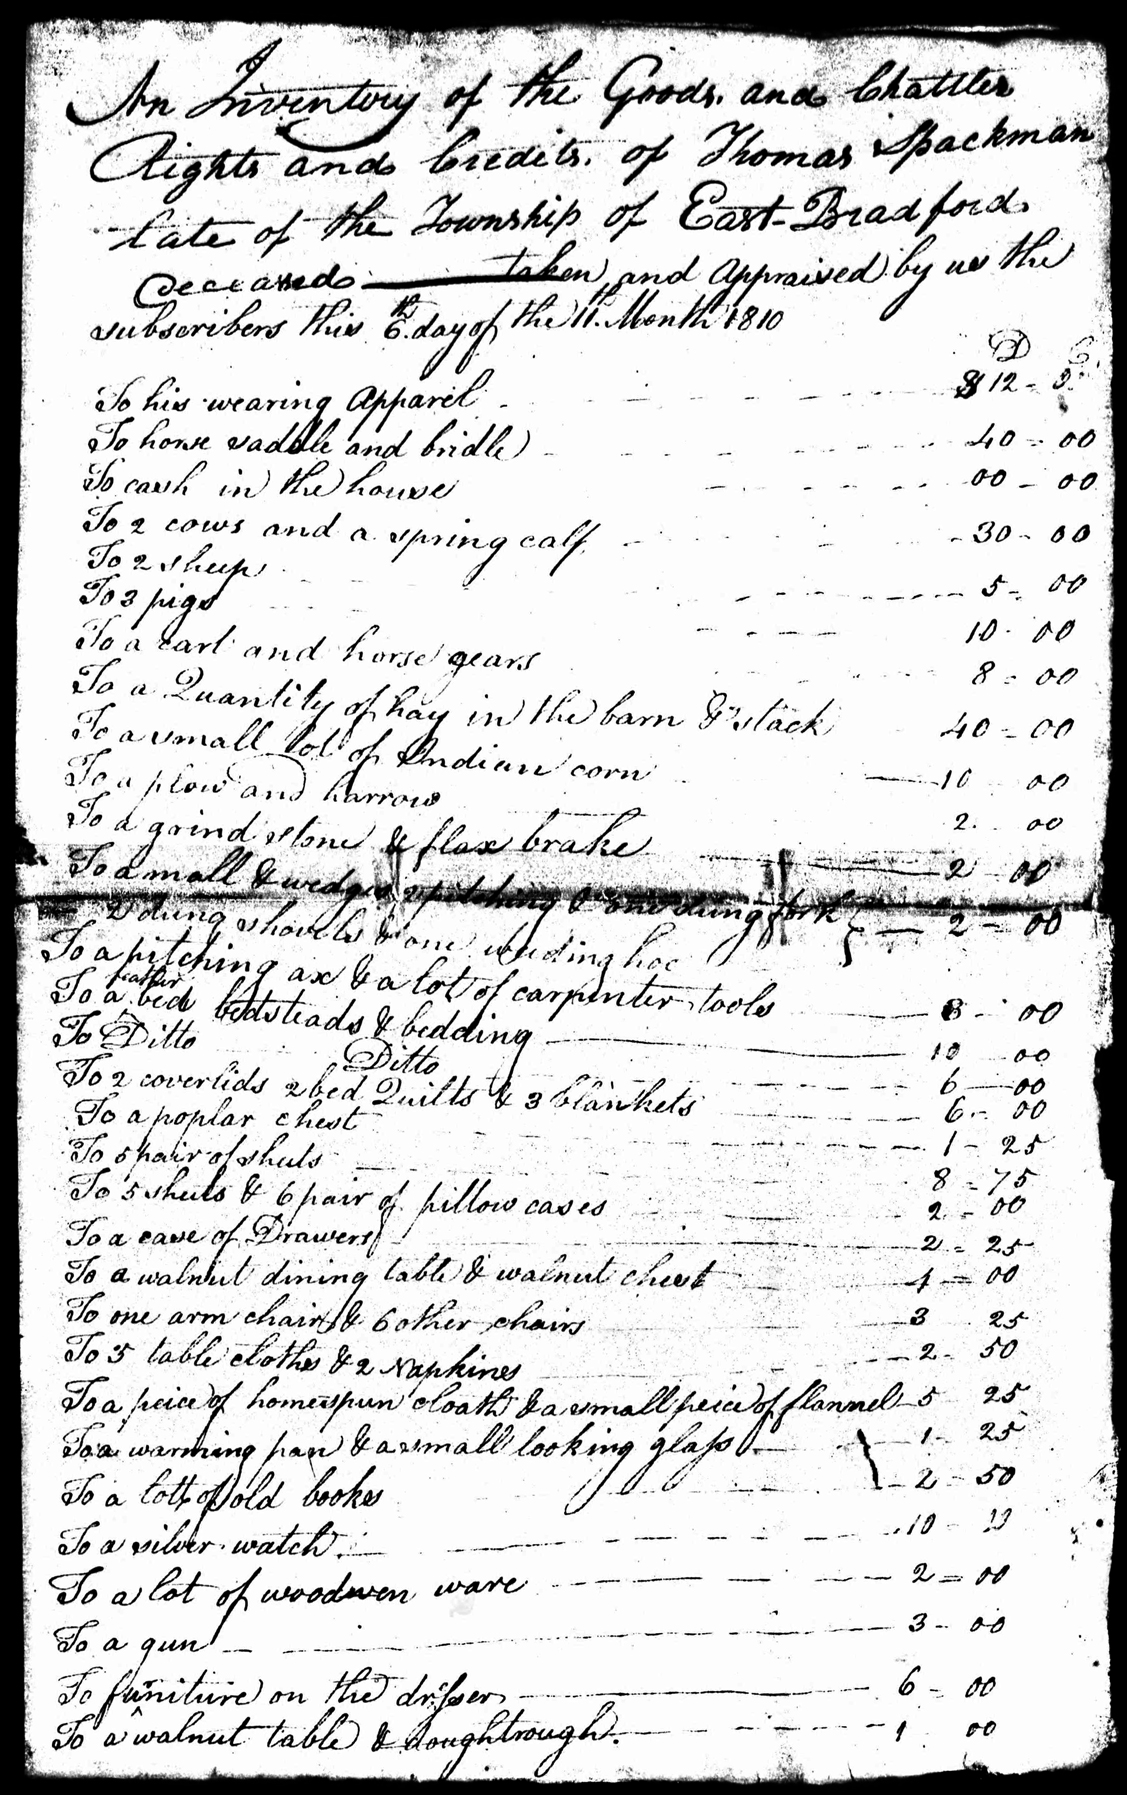 An Inventory of the Goods. and Chattles
Rights and Credits. of Thomas Spackman
late of the Township of East-Bradford.
Deceased taken and appraised by us the
subscribers this 6.th day of the 11.th Month 1810
D C
To his wearing Apparel $12 - 5
To horse saddle and bridle 40 - 00
To cash in the house 00 - 00
To 2 cows and a spring calf 30 - 00
To 2 sheep 5 - 00
To 3 pigs 10 - 00
To a cart and horse gears 8 = 00
To a Quantity of hay in the barn & stack 40 = 00
To a small lot of Indian corn 10 00
To a plow and harrow 2 . 00
To a grind stone & flax brake 2 00
To a mall & wedges pitching & one dung fork
2 dung shovels & one weeding hoe } 2 - 00
To a pitching ax & a lot of carpinter tools 8 - 00
To a feather bed bedsteads & bedding 10 00
To Ditto Ditto 6 - 00
To 2 coverlids 2 bed Quilts & 3 blankets 6 - 00
To a poplar chest 1 - 25
To 5 pair of sheets 8 = 75
To 5 sheets & 6 pair of pillow cases 2 = 00
To a case of Drawers 2 = 25
To a walnut dining table & walnut chest 4 = 00
To one arm chair & 6 other chairs 3 25
To 5 table cloths & 2 Napkines 2 - 50
To a peice of homespun cloath & a small peice of flannel 5 25
To a warming pan & a small looking glass 1 - 25
To a lott of old books 2 - 50
To a silver watch 10 -
To a lot of woodwen ware 2 = 00
To a gun 3 - 00
To furniture on the drisser 6 - 00
To a walnut table & doughtrough. 1 00